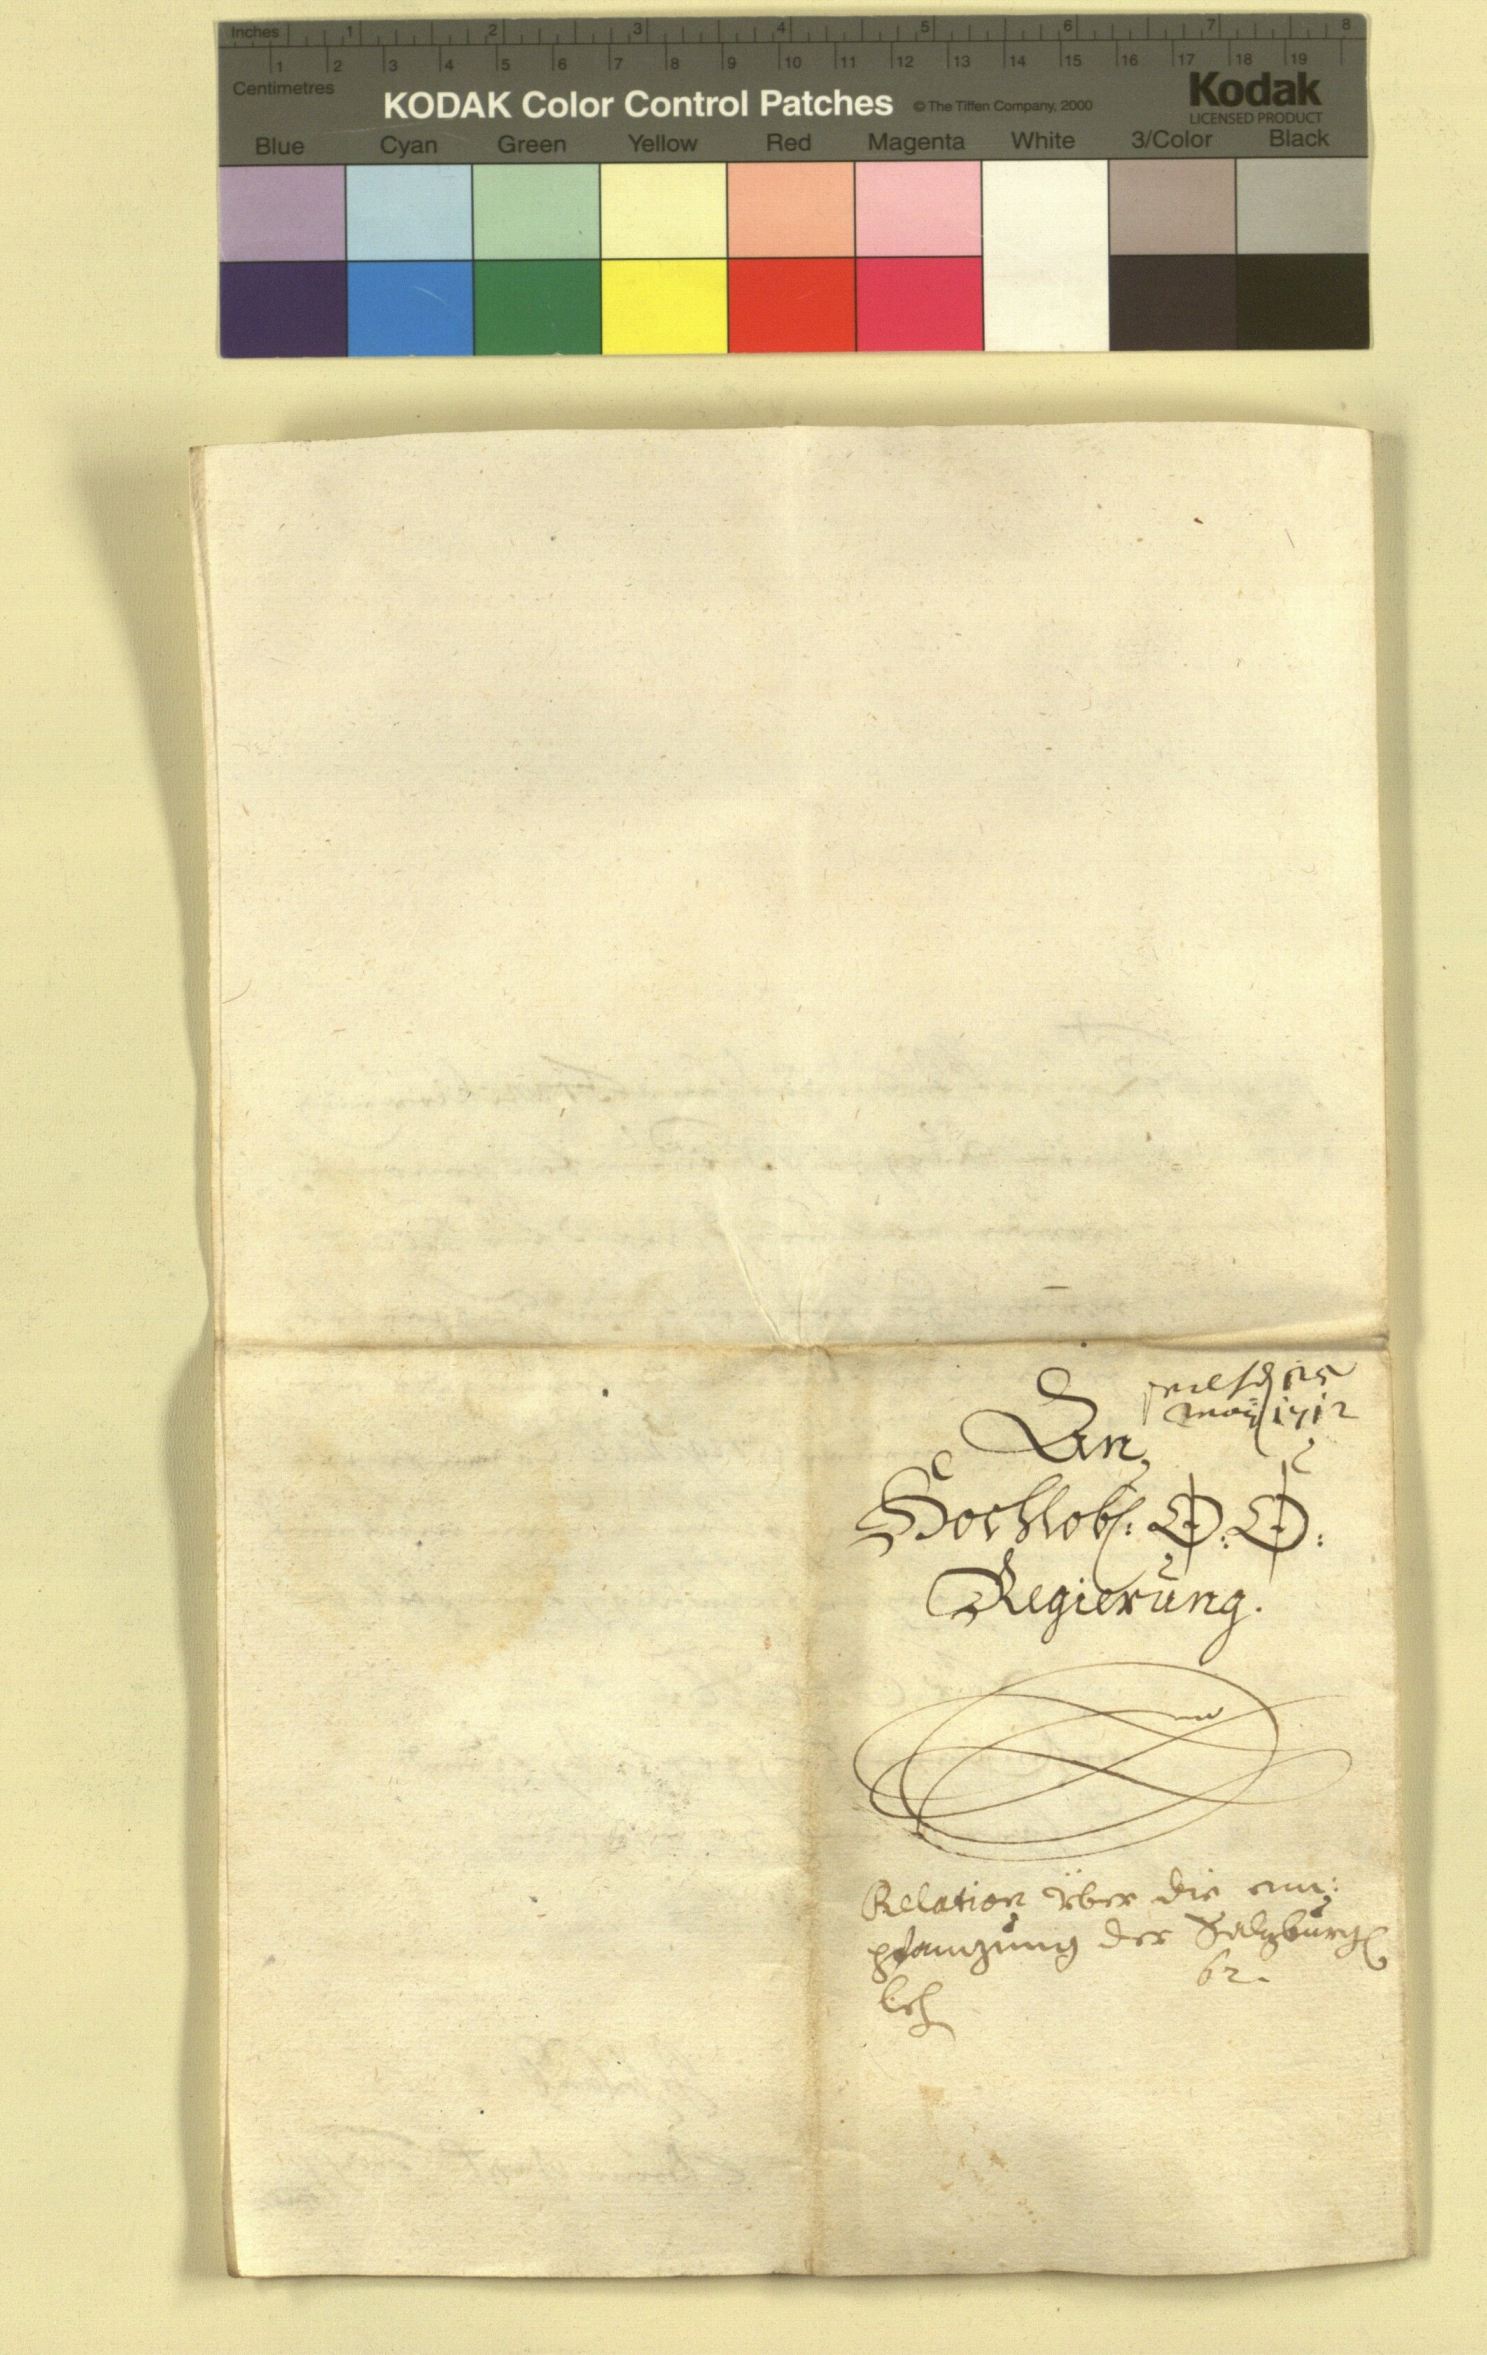 Inches 1 2 3 4 5 6 7 8
1 2 3 4 5 6 7 8 9 10 11 12 13 14 15 16 17 18 19
Centimetres
KODAK Color Control Patches © The Tiffen Company, 2000 Kodak
LICENSED PRODUCT
Blue Cyan Green Yellow Red Magenta White 3/Color Black
May 1712
An
Hochlobl: O: Ö:
Regierung.
Relation über die
der Salzburg
62.